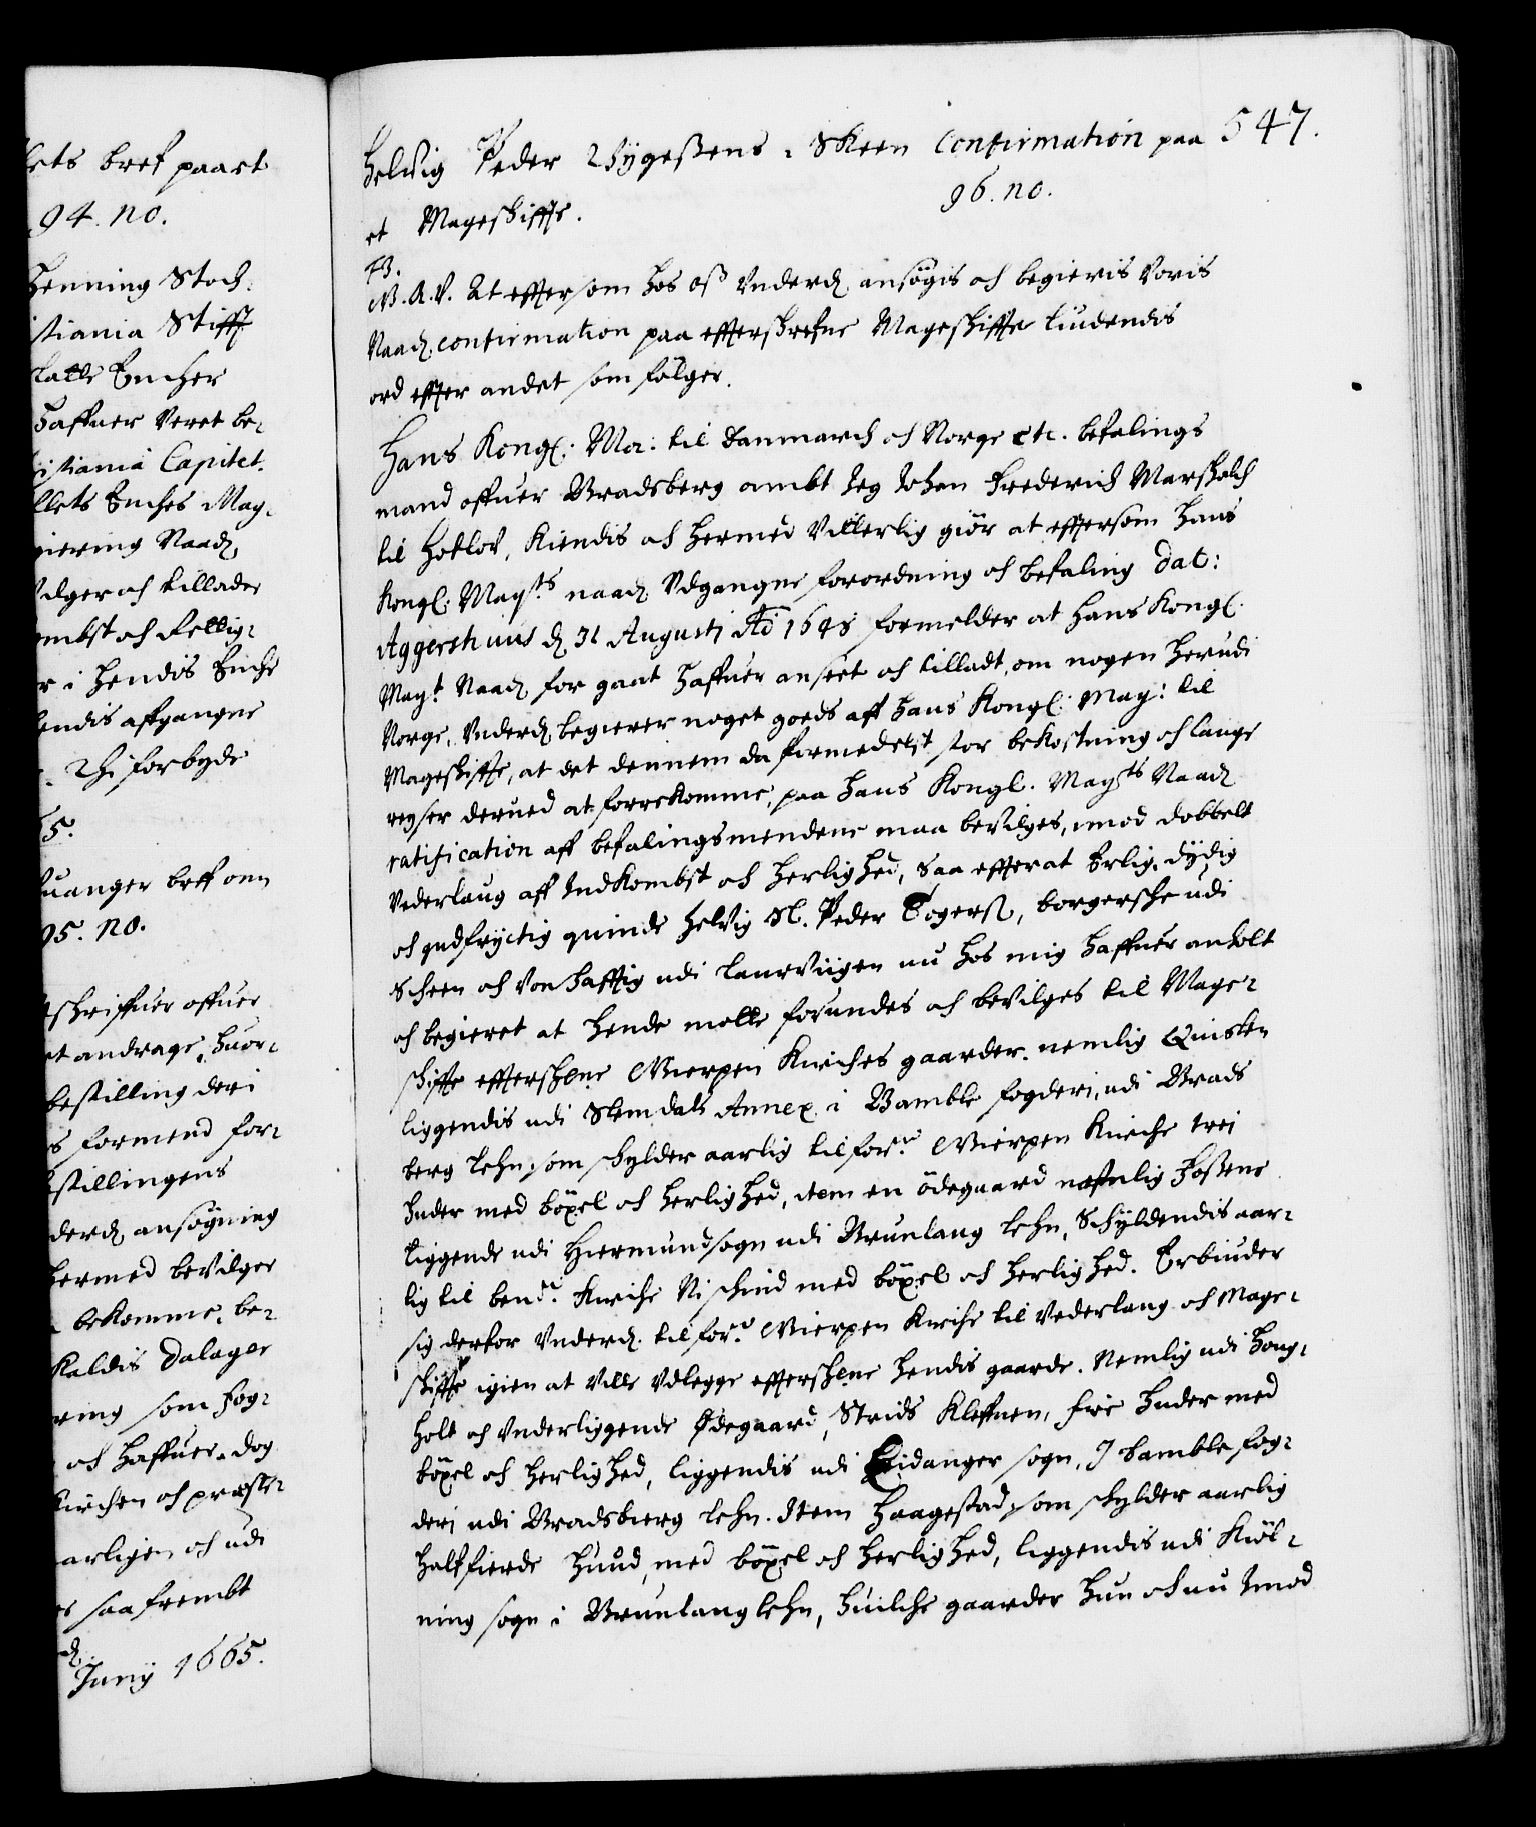 lets bref paa et
94. no.
Henning Stoch¬
stiania Stifft
Capitels Encker
Haffuer veret be¬
istiania Capitel.
llets Enches Nay¬
giering Naad.
ombst och Rettig¬
r i hendis Enche
hendis affgangne
forbyde
5.
uanger breff om
95. no.
schriffuer offuer
et andrage, huor¬
bestilling deri
s formend for¬
stillingens
derd. ansøgning
hermed bevilger
bekomme, be¬
kaldis Dalager
ring som fog¬
och haffuer. Dog
Kirchen och præste¬
aarligen och udi
saa frembt
d.
Junij 1665.
547.
Helvig Peder i Skeen Confirmation paa
et Mageskiffte.
96. no.
F3.
W. A. V. At effter som hos oss underd. ansøgis och begieris voris
Naad. confirmation paa effterskrefne Mageskiffte liudendis
ord effter andet som følger.
Hans Kongl: Ma: til Danmarch och Norge etc. befalings
mand offuer Bradsberg ambt Jeg Johan Frederich Marschalch
til Hotlov, Kiendis och hermed vitterlig giør at effterson Hans
Kongl: Mayts naad. Udgangne forordning och befaling Dat:
Aggershuus d. 31 Augusti Ao 1648 formelder at Hans Kongl.
Mayt Naad. for gaat haffuer anseet och tilladt, om nogen herudi
Norge, Underd. begierer noget goeds aff Hans Kongl: May: til
Mageskiffte, at det dennem da formedelst stor bekostning och lange
reyser derued at forrekomme, paa Hans Kongl. Mayts Naad.
ratification aff befalingsmendene maa bevilges, imod dobbelt
Vederlaug aff Indkombst och herlighed, Saa effterat Erlig, dydig
och gudfryctig quinde Helvig Sl. Peder Bogers, borgerske udi
Scheen och vonhafftig udi Laurviigen nu hos mig haffuer anholt
och begieret at hende motte forundes och bevilges til Mage¬
skiffte efftershne Gierpen Kirches gaarder. nemlig
liggendis udi Slemdals Annex i Bamble fogderi, udi Brads
berg Lehn, som schylder aarlig til for.ne Gierpen Kirche trej
huder med böxel och herlighed, item en ødegaard nafnlig Fossene
liggende udi Hiermundsogn udi Brunlaug Lehn, Schyldendis aar¬
lig til ben.te Kirche Ni schind med böxel och herlighed. Erbiuder
sig derfor Underd. til for.e Gierpen Kirche til Vederlaug och Mage¬
skiffte igien at Ville Udlegge efftershne hendis gaarde. Nemlig udi Houg¬
holt och Underliggende Ødegaard, Strids Kleffuen, fire huder med
böxel och herlighed, liggendis udi Eidanger sogn, I Bamble fog¬
deri udi Bradsbierg Lehn. Item Haagestad, som schylder aarlig
Halffierde Huud, med böxel och herlighed, liggendis udi Kiöl¬
ning sogn i Brunlaug Lehn, huilche gaarder hun och nu imod